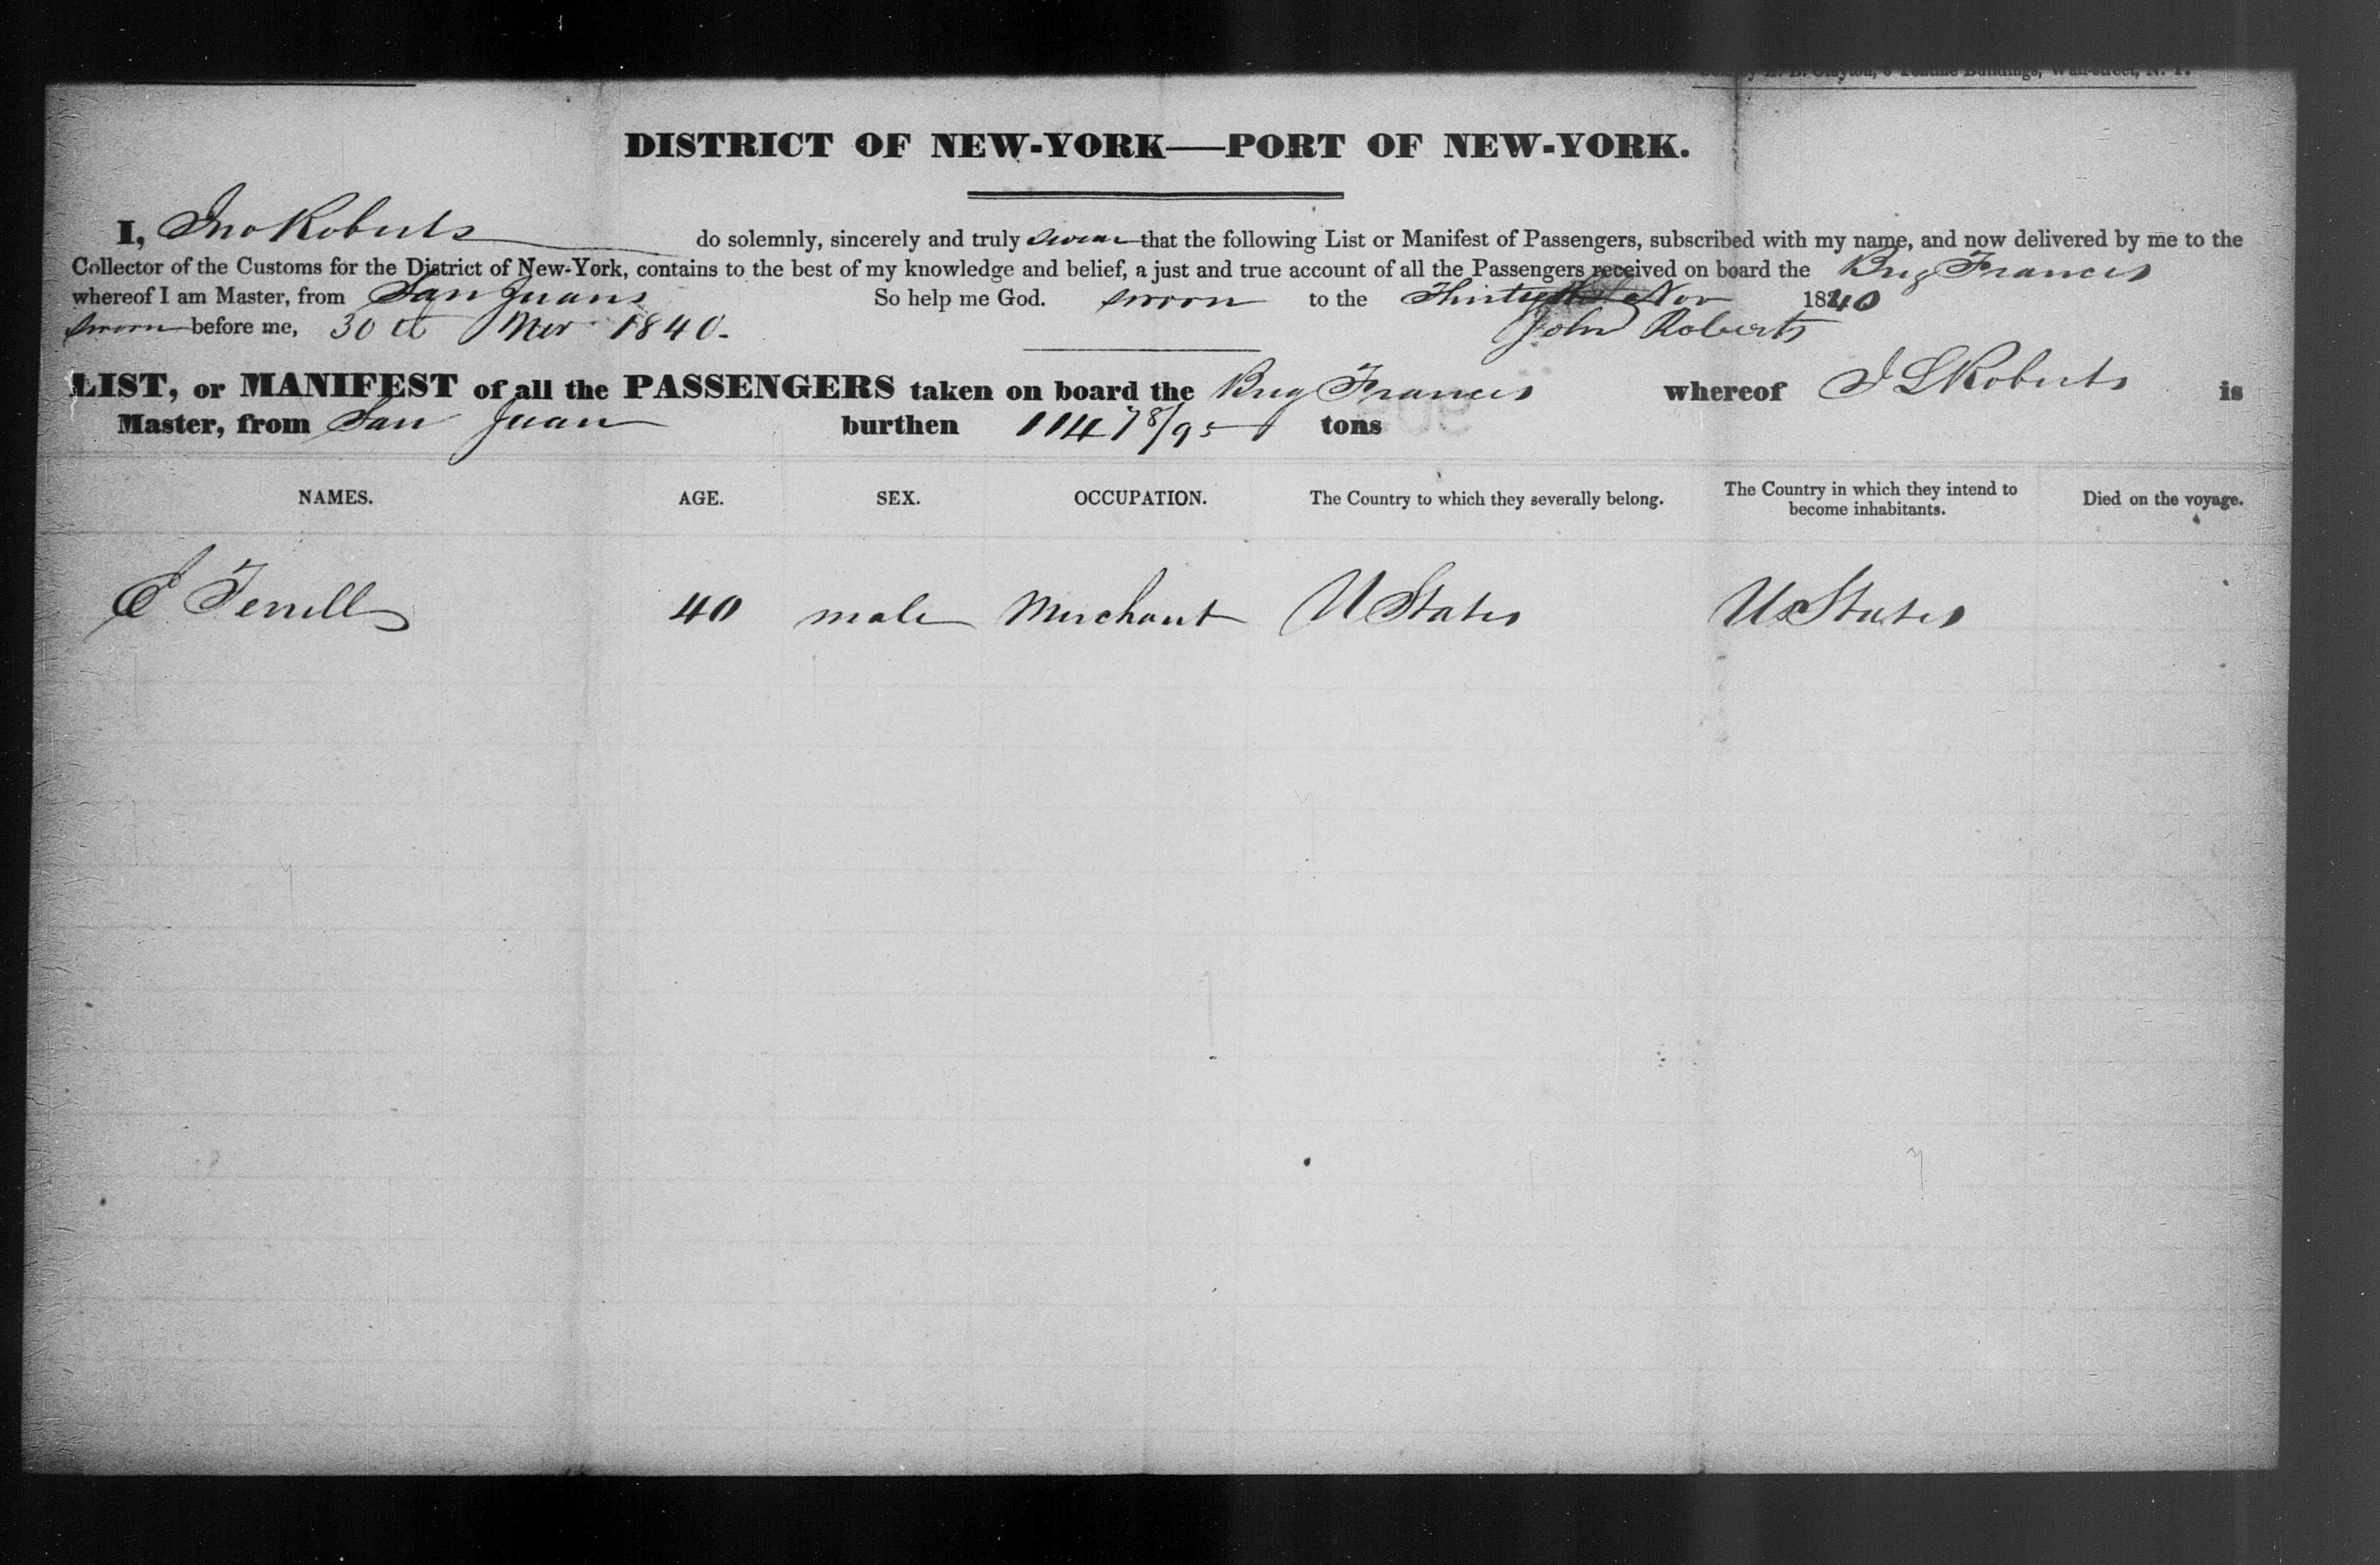 Clayton, 6 Tontine Buildings, Wall-street, N. Y.
DISTRICT OF NEW-YORK—PORT OF NEW-YORK.
I, Jno Roberts do solemnly, sincerely and truly swear that the following List or Manifest of Passengers, subscribed with my name, and now delivered by me to the
Collector of the Customs for the District of New-York, contains to the best of my knowledge and belief, a just and true account of all the Passengers received on board the Brig Frances
whereof I am Master, from San Juans So help me God. sworn to the Thirtyeth Nov 1840
sworn before me, 30 1840. John Roberts
LIST, or MANIFEST of all the PASSENGERS taken on board the Brig Frances whereof J L Roberts is
Master, from San Juan burthen 114 78/95 tons
NAMES. AGE. SEX. OCCUPATION. The Country to which they severally belong. The Country in which they intend to become inhabitants. Died on the voyage.
E Terrill 40 male Merchant U States U States